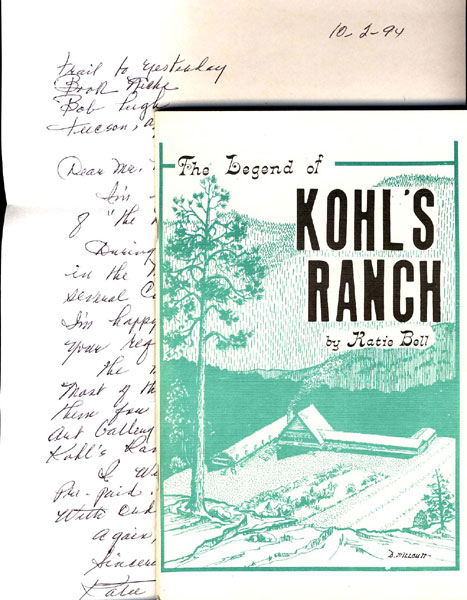 10-2-94
Trail to Yesterday
Book
Bob Pugh
Tucson, A
Dear Mr.
I'm
of "the
During
in the
several C
I'm happy
your req
the
Most of th
them for
Art Galler
Kohl's Ran
I wi
Pre-paid.
With
Again,
Sincere
Katie
The Legend of
KOHL'S
RANCH
by Katie Bell